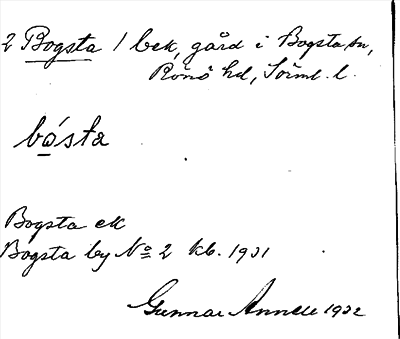 2 Bogsta / bek, gård i Bogsta sn,
Rönö hd, Sörml. l.
bo̲´sta
Bogsta ek
Bogsta by No 2 kb. 1931
Gunnar Annell 1932